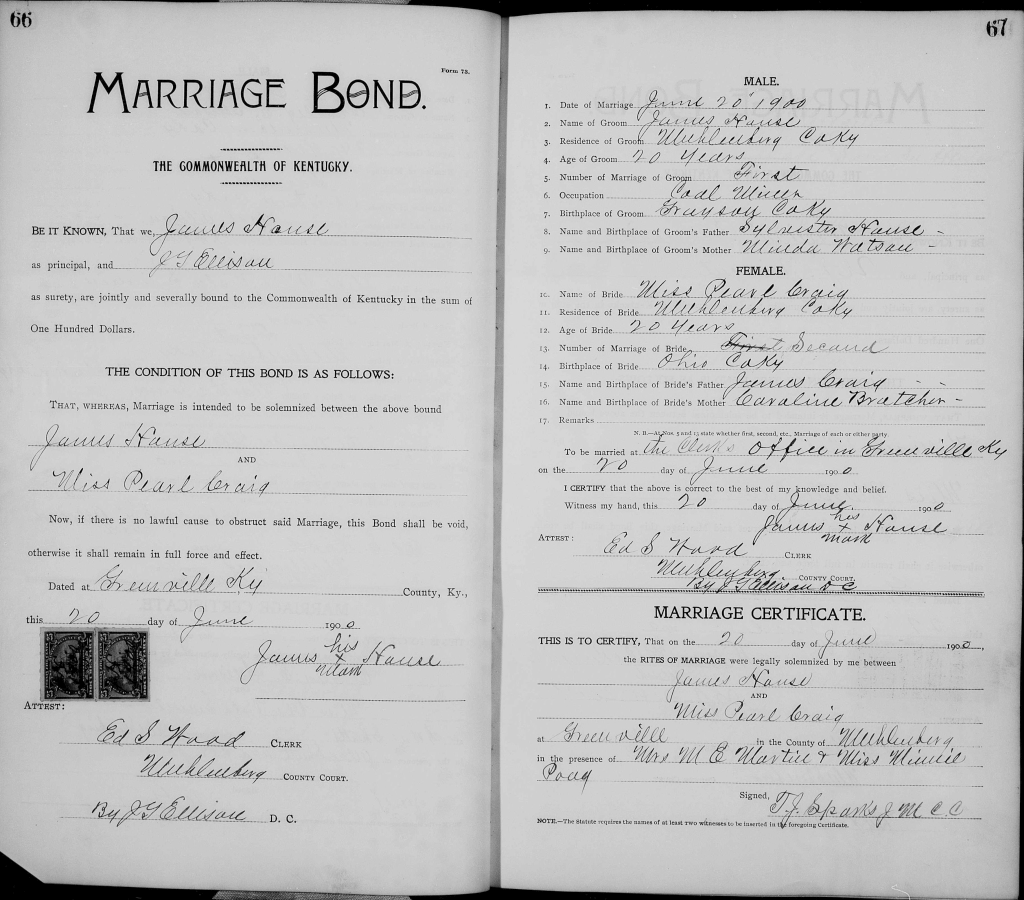 66
Form 78.
MARRIAGE BOND.
THE COMMONWEALTH OF KENTUCKY.
BE IT KNOWN, That we, James House
as principal, and J G Ellison
as surety, are jointly and severally bound to the Commonwealth of Kentucky in the sum of
One Hundred Dollars.
THE CONDITION OF THIS BOND IS AS FOLLOWS:
THAT, WHEREAS, Marriage is intended to be solemnized between the above bound
James House
AND
Miss Pearl Craig
Now, if there is no lawful cause to obstruct said Marriage, this Bond shall be void,
otherwise it shall remain in full force and effect.
Dated at Greenville Ky County, Ky.,
this 20 day of June 1900
his
James x House
mark
ATTEST:
Ed S Wood CLERK
Muhlenberg COUNTY COURT.
By J G Ellison D. C.
67
MALE.
1. Date of Marriage June 20" 1900
2. Name of Groom James House
3. Residence of Groom Muhlenberg Co Ky
4. Age of Groom 20 Years
5. Number of Marriage of Groom First
6. Occupation Coal Miner
7. Birthplace of Groom Grayson Co Ky
8. Name and Birthplace of Groom's Father Sylvester House -
9. Name and Birthplace of Groom's Mother Minda Watson -
FEMALE.
10. Name of Bride Miss Pearl Craig
11. Residence of Bride Muhlenberg Co Ky
12. Age of Bride 20 Years
13. Number of Marriage of Bride First Second
14. Birthplace of Bride Ohio Co Ky
15. Name and Birthplace of Bride's Father James Craig - -
16. Name and Birthplace of Bride's Mother Caroline Bratcher -
17. Remarks
N. B.—At Nos. 5 and 13 state whether first, second, etc., Marriage of each or either party.
To be married at the Clerks office in Greenville Ky
on the 20 day of June 1900
I CERTIFY that the above is correct to the best of my knowledge and belief.
Witness my hand, this 20 day of June. 1900
his
James x House
mark
ATTEST:
Ed S Wood CLERK
Muhlenberg COUNTY COURT.
By J G Ellison D C
MARRIAGE CERTIFICATE.
THIS IS TO CERTIFY, That on the 20 day of June 1900,
the RITES OF MARRIAGE were legally solemnized by me between
James House
AND
Miss Pearl Craig
at Greenville in the County of Muhlenberg
in the presence of Mrs M E Martin & Miss Minnie
Poag
Signed, T. J. Sparks J M C C
NOTE.—The Statute requires the names of at least two witnesses to be inserted in the foregoing Certificate.